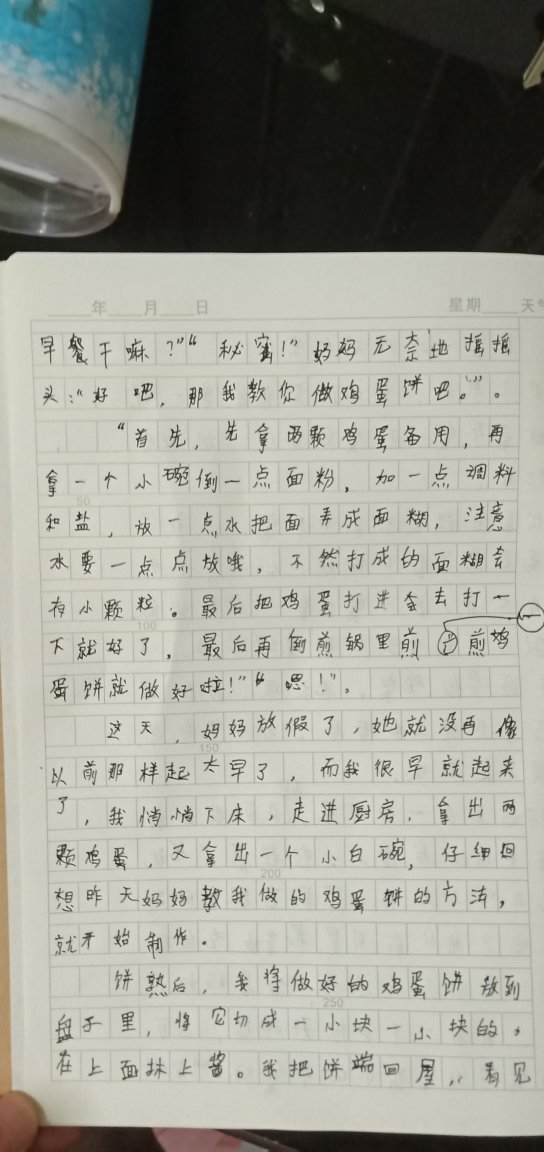 年 月 日 星期 天气
早餐干嘛?”“秘蜜!”妈妈无奈地摇摇
头:“好吧,那我教你做鸡蛋饼吧。”。
“首先,先拿两颗鸡蛋备用,再
拿一个小碗倒一点面粉,加一点调料
50
和盐,放一点水把面弄成面糊,注意
水要一点点放哦,不然打成的面糊会
有小颗粒。最后把鸡蛋打进会去打一
100
下就好了,最后再倒煎锅里煎 一 煎鸡
蛋饼就做好啦!”“恩!”。
这天,妈妈放假了,她就没再像
150
以前那样起太早了,而我很早就起来
了,我悄悄下床,走进厨房,拿出两
颗鸡蛋,又拿出一个小白碗,仔细回
200
想昨天妈妈教我做的鸡蛋饼的方法,
就开始制作。
饼熟后,我将做好的鸡蛋饼放到
250
盘子里,将它切成一小块一小块的,
在上面抹上酱。我把饼端回屋,看见